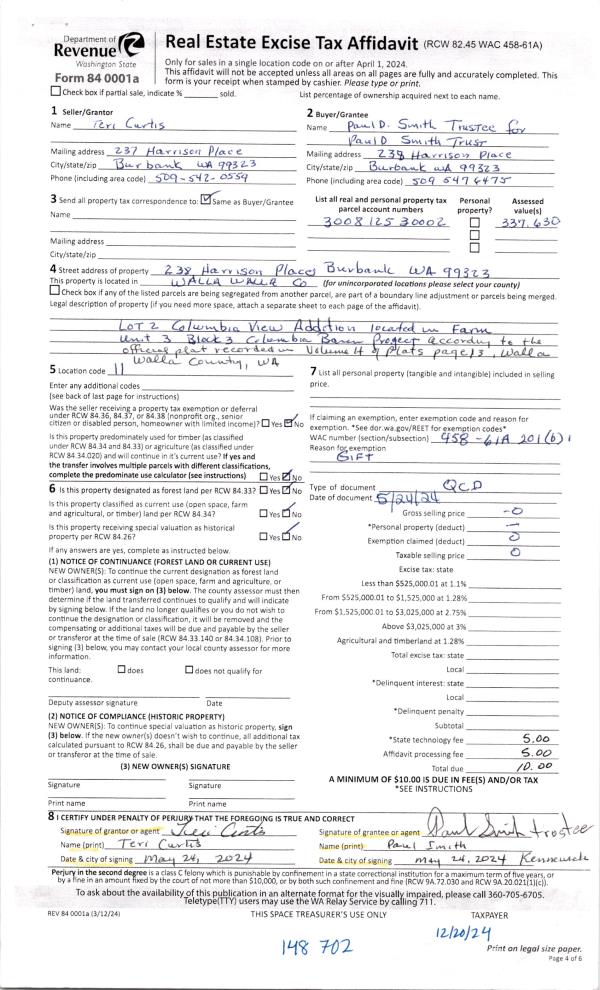 Department of
Revenue
Washington State
Form 84 0001a
Real Estate Excise Tax Affidavit (RCW 82.45 WAC 458-61A)
Only for sales in a single location code on or after April 1, 2024.
This affidavit will not be accepted unless all areas on all pages are fully and accurately completed. This
form is your receipt when stamped by cashier. Please type or print.
Check box if partial sale, indicate % ______ sold.
List percentage of ownership acquired next to each name.
1 Seller/Grantor
Name Teri Curtis
Mailing address 237 Harrison Place
City/state/zip Burbank WA 99323
Phone (including area code) 509-542-0559
2 Buyer/Grantee
Name Paul D. Smith Trustee for
Paul D Smith Trust
Mailing address 238 Harrison Place
City/state/zip Burbank WA 99323
Phone (including area code) 509 547 6475
3 Send all property tax correspondence to: ☑ Same as Buyer/Grantee
Name
Mailing address
City/state/zip
List all real and personal property tax
parcel account numbers
Personal
property?
Assessed
value(s)
300812530002
337,630
4 Street address of property 238 Harrison Place, Burbank WA 99323
This property is located in WALLA WALLA Co (for unincorporated locations please select your county)
Check box if any of the listed parcels are being segregated from another parcel, are part of a boundary line adjustment or parcels being merged.
Legal description of property (if you need more space, attach a separate sheet to each page of the affidavit).
LOT 2 Columbia View Addition located in Farm
Unit 3 Block 3 Columbia Basin Project according to the
official plat recorded in Volume H of Plats page 13, Walla
Walla County, WA
5 Location code 11
Enter any additional codes
(see back of last page for instructions)
Was the seller receiving a property tax exemption or deferral
under RCW 84.36, 84.37, or 84.38 (nonprofit org., senior
citizen or disabled person, homeowner with limited income)? ☐ Yes ☑ No
Is this property predominately used for timber (as classified
under RCW 84.34 and 84.33) or agriculture (as classified under
RCW 84.34.020) and will continue in it's current use? If yes and
the transfer involves multiple parcels with different classifications,
complete the predominate use calculator (see instructions) ☐ Yes ☑ No
6 Is this property designated as forest land per RCW 84.33? ☐ Yes ☑ No
Is this property classified as current use (open space, farm
and agricultural, or timber) land per RCW 84.34? ☐ Yes ☑ No
Is this property receiving special valuation as historical
property per RCW 84.26? ☐ Yes ☑ No
If any answers are yes, complete as instructed below.
(1) NOTICE OF CONTINUANCE (FOREST LAND OR CURRENT USE)
NEW OWNER(S): To continue the current designation as forest land
or classification as current use (open space, farm and agriculture, or
timber) land, you must sign on (3) below. The county assessor must then
determine if the land transferred continues to qualify and will indicate
by signing below. If the land no longer qualifies or you do not wish to
continue the designation or classification, it will be removed and the
compensating or additional taxes will be due and payable by the seller
or transferor at the time of sale (RCW 84.33.140 or 84.34.108). Prior to
signing (3) below, you may contact your local county assessor for more
information.
This land: ☐ does ☐ does not qualify for
continuance.
Deputy assessor signature Date
(2) NOTICE OF COMPLIANCE (HISTORIC PROPERTY)
NEW OWNER(S): To continue special valuation as historic property, sign
(3) below. If the new owner(s) doesn't wish to continue, all additional tax
calculated pursuant to RCW 84.26, shall be due and payable by the seller
or transferor at the time of sale.
(3) NEW OWNER(S) SIGNATURE
Signature Signature
Print name Print name
7 List all personal property (tangible and intangible) included in selling
price.
If claiming an exemption, enter exemption code and reason for
exemption. *See dor.wa.gov/REET for exemption codes*
WAC number (section/subsection) 458-61A 201(b)1
Reason for exemption
GIFT
Type of document QCD
Date of document 5/24/24
Gross selling price -0
*Personal property (deduct) —
Exemption claimed (deduct) 0
Taxable selling price 0
Excise tax: state
Less than $525,000.01 at 1.1%
From $525,000.01 to $1,525,000 at 1.28%
From $1,525,000.01 to $3,025,000 at 2.75%
Above $3,025,000 at 3%
Agricultural and timberland at 1.28%
Total excise tax: state
Local
*Delinquent interest: state
Local
*Delinquent penalty
Subtotal
*State technology fee 5.00
Affidavit processing fee 5.00
Total due 10.00
A MINIMUM OF $10.00 IS DUE IN FEE(S) AND/OR TAX
*SEE INSTRUCTIONS
8 I CERTIFY UNDER PENALTY OF PERJURY THAT THE FOREGOING IS TRUE AND CORRECT
Signature of grantor or agent Teri Curtis
Name (print) Teri Curtis
Date & city of signing May 24, 2024
Signature of grantee or agent Paul Smith trustee
Name (print) Paul Smith
Date & city of signing may 24, 2024 Kennewick
Perjury in the second degree is a class C felony which is punishable by confinement in a state correctional institution for a maximum term of five years, or
by a fine in an amount fixed by the court of not more than $10,000, or by both such confinement and fine (RCW 9A.72.030 and RCW 9A.20.021(1)(c)).
To ask about the availability of this publication in an alternate format for the visually impaired, please call 360-705-6705.
Teletype(TTY) users may use the WA Relay Service by calling 711.
REV 84 0001a (3/12/24)
THIS SPACE TREASURER'S USE ONLY
TAXPAYER
148 702
12/20/24
Print on legal size paper.
Page 4 of 6